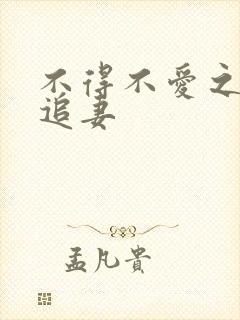 不得不愛之
追妻
孟凡貴